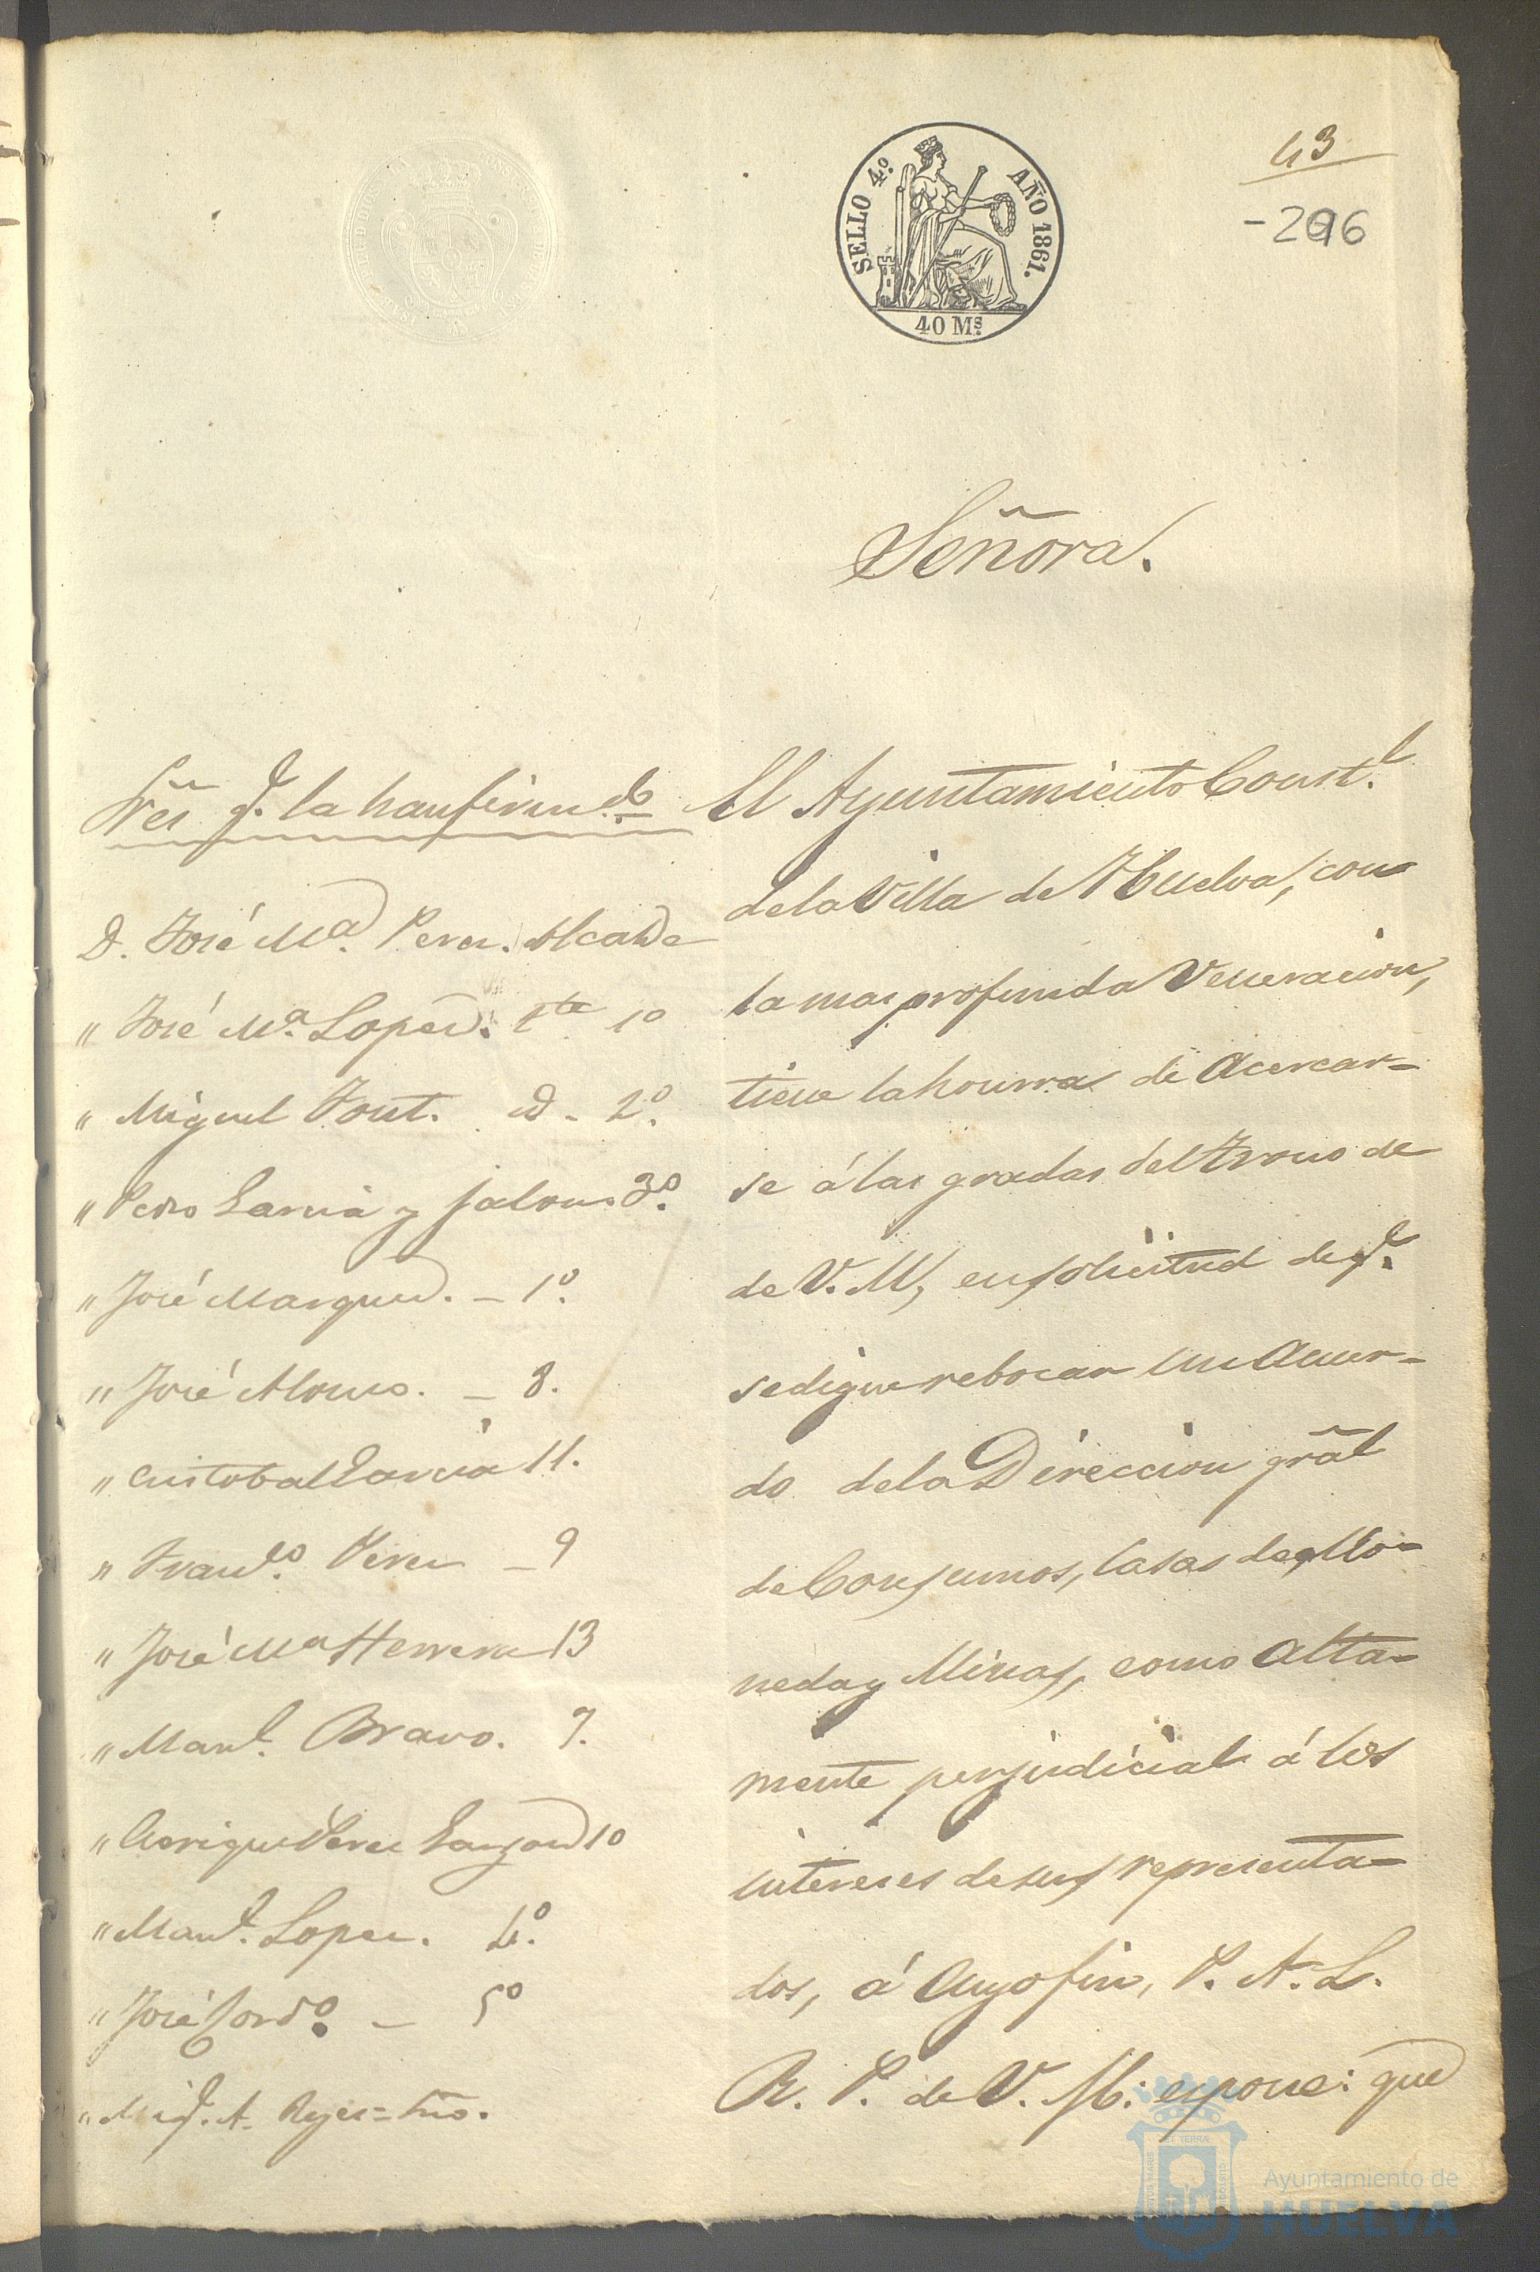 SELLO 4.º AÑO 1861.
40 Ms.
43
-296
Señora.
Sres q.e la han firmdo
D. José M.a Perez. Alcalde
" José M.a Lopez. Tte 1º
" Miguel Font. id - 2º.
" Pedro Garcia y Jalon 3º.
" José Marquez. - 1º.
" José Alonso. - 8.
" Cristobal Garcia 11.
" Franco. Perez - 9
" José Ma Herrera 13
" Manl. Bravo. 7.
" Perez 10
" Manl. Lopez. 4º.
" José - 5º
" Migl. A. Reyes = Srio.
El Ayuntamiento Const.l
de la Villa de Huelva, con
la mas profunda Veneracion,
tiene la honrra de Acercar-
se á las gradas del Trono de
de V. M, en solicitud de q.e
se digne rebocar un Acuer-
do de la Direccion gral
de Consumos, Casas de Mo-
neda y Minas, como alta-
mente perjudicial á los
intereses de sus representa-
dos, á cuyo fin, P. A. L.
R. P. de V. M: espone: que
Ayuntamiento de
HUELVA